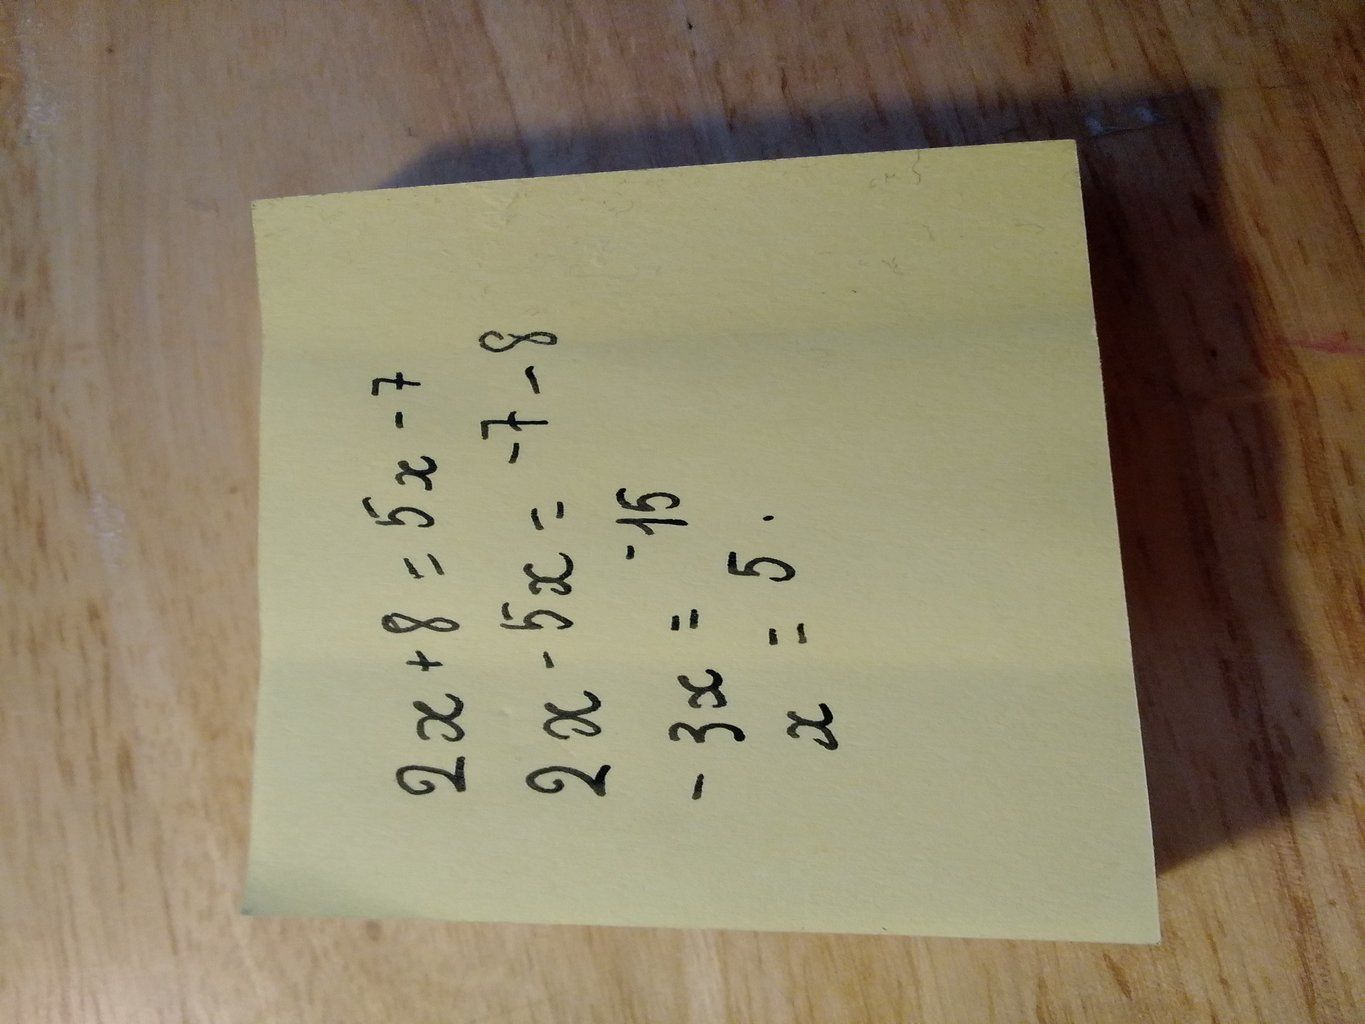 2x + 8 = 5x - 7
2x - 5x = -7 - 8
-3x = -15
x = 5.